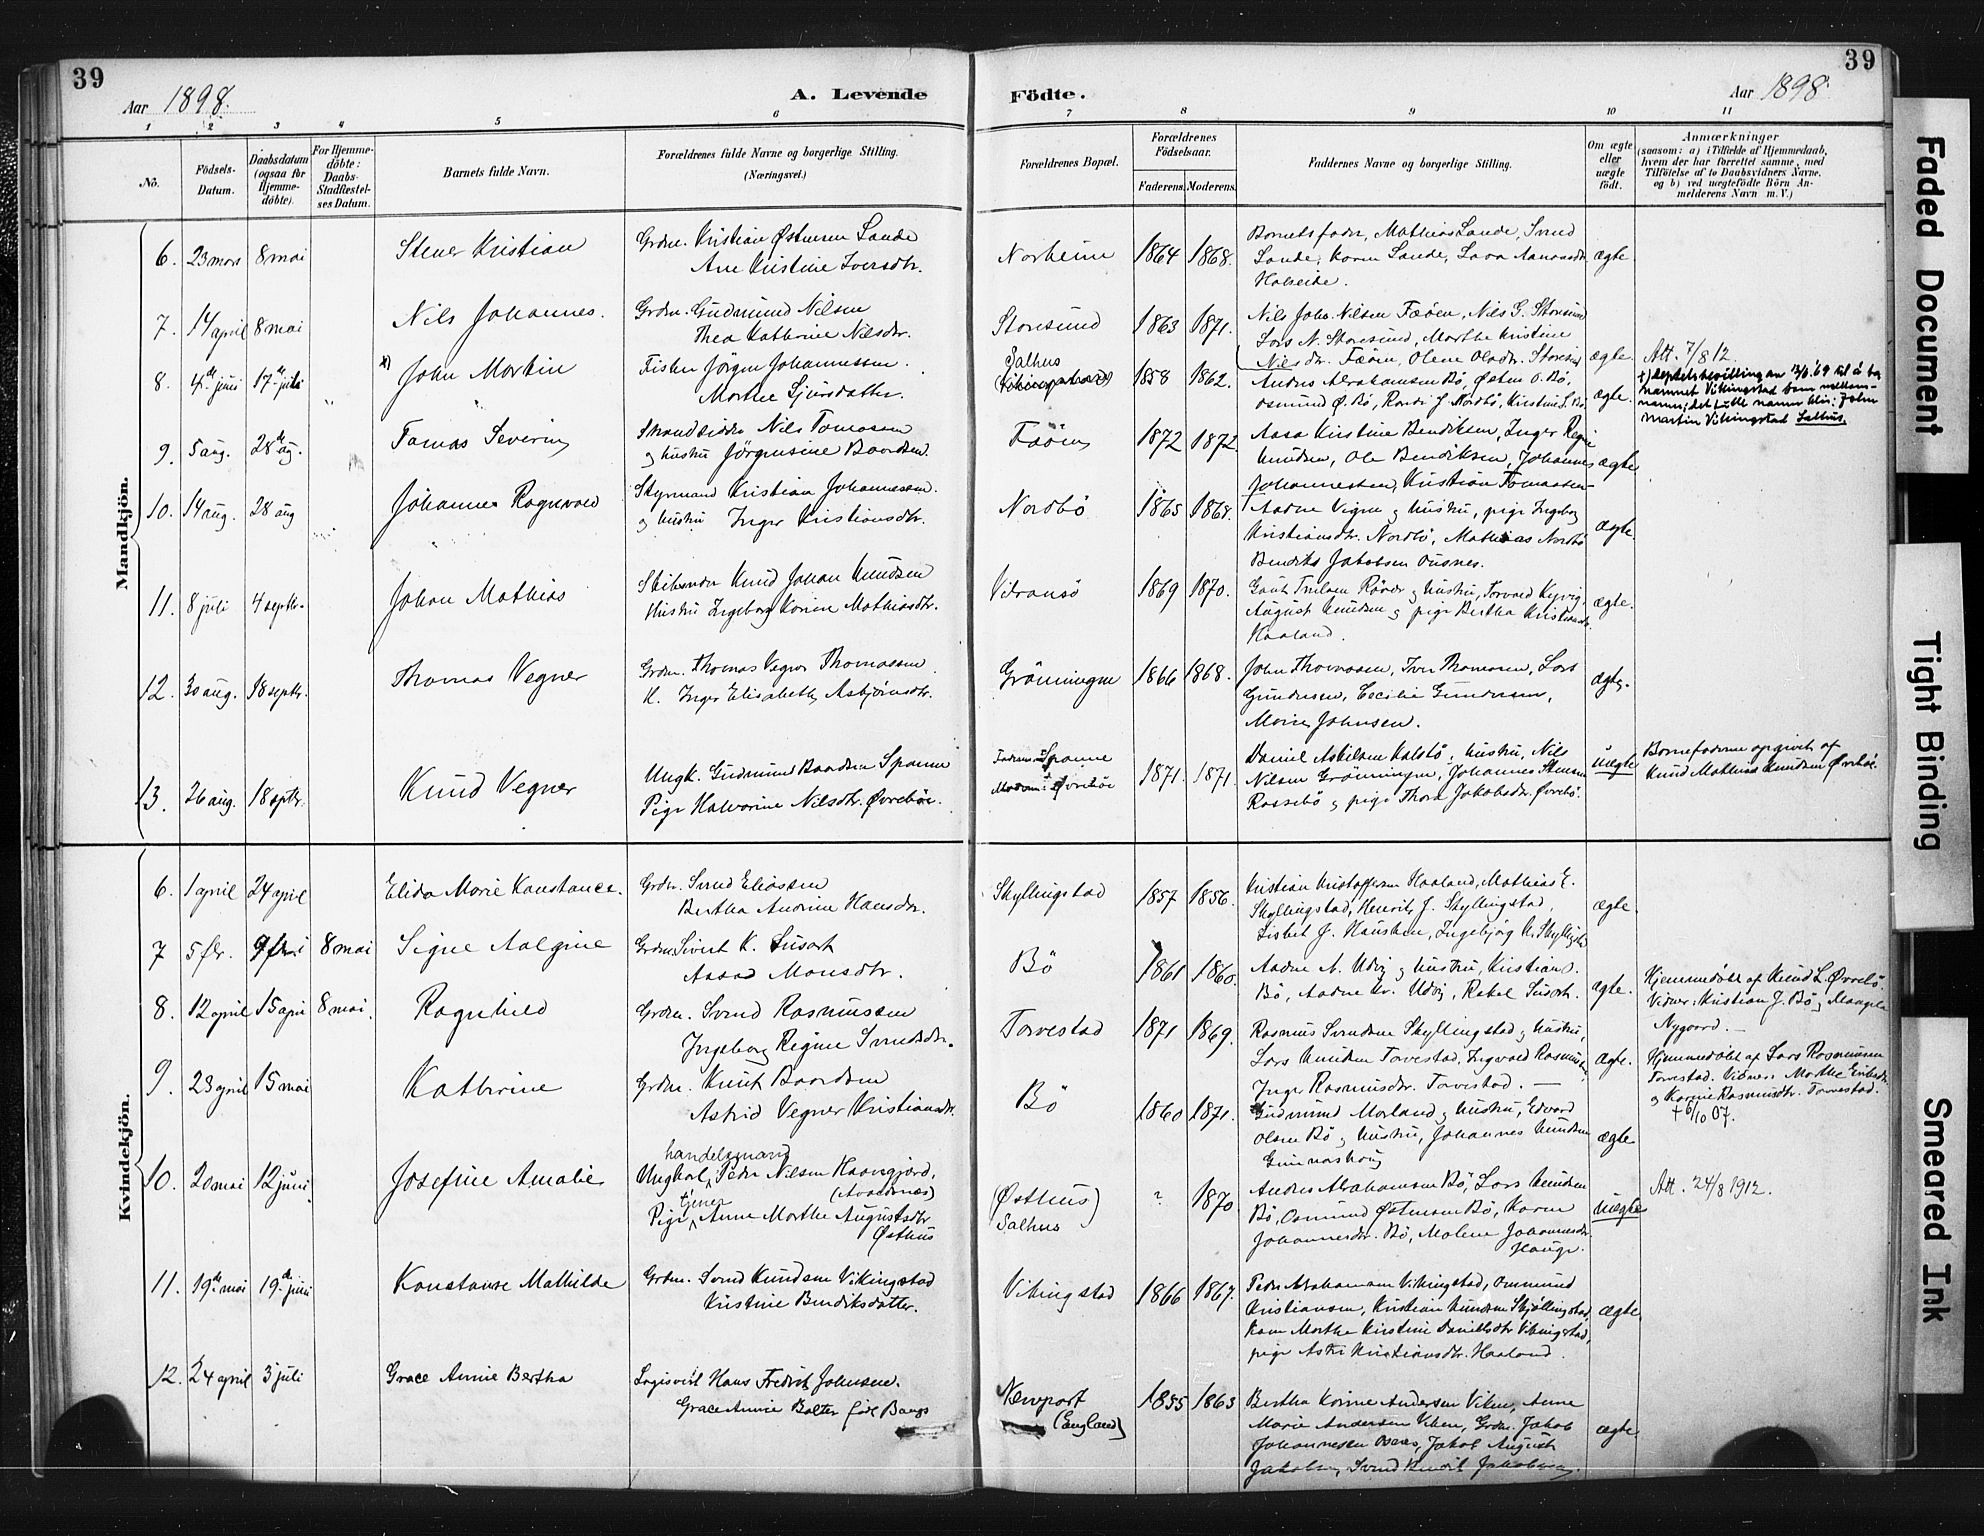 39
39
Aar 1898.
A. Levende
Födte.
Aar 1898.
1 2 3 4 5 6 7 8 9 10 11
No.
Födsels-Datum.
Daabsdatum (ogsaa for Hjemme-döbte).
For Hjemme-döbte: Daabs-Stadfæstel-ses Datum.
Barnets fulde Navn.
Forældrenes fulde Navne og borgerlige Stilling. (Næringsvei.)
Forældrenes Bopæl.
Forældrenes Födselsaar.
Faderens. Moderens.
Faddernes Navne og borgerlige Stilling.
Om ægte eller uægte födt.
Anmærkninger
(saasom: a) i Tilfælde af Hjemmedaab, hvem der har forrettet samme, med Tilföielse af to Daabsvidners Navne. og b) ved uægtefödte Börn An-melderens Navn m.V.)
Mandkjön.
6. 23 mars 8 mai Stener Kristian
Grdm. Kristian Østensen Lande
Ane Kristine Iversdtr.
Norheim 1864 1868.
Barnets fader, Mathias Lande, Svend
Lande, Karen Lande, Lava
ægte
7. 14 april 8 mai Nils Johannes.
Grdm. Gudmund Nilsen
Thea Kathrine Nilsdtr.
Storesund 1863 1871.
Nils Joh. Nilsen Fæöen, Nils G. Storesund
Lars N. Storesund, Marthe Kristine
Nilsdtr. Fæöen, Olene Olsdtr. Storesund
ægte.
8. 4de juni 17de juli John Martin
Fisker Jörgen Johannessen.
Marthe Sjursdatter.
Salhus
1858 1862.
Andres Abrahamsen Bö, Østen O. Bö,
Osmund Ø. Bö, Randi J. Nordbö, Kristine
ægte.
Att. 7/8 12.
navnet Vikingstad som
martin Vikingstad Salhus.
9. 5 aug. 28de ag. Tomas Severin
Strandsidder Nils Tomassen
og hustru Jörgensine Baardsen.
Fæöen 1872 1872.
Aasa Kristine Bendiksen, Inger Regine
Knudsen, Ole Bendiksen, Johannes
Johannessen, Kristian Tomassen
ægte
10. 14 aug. 28 aug Johannes Ragnvald
Styrmand Kristian Johannessen.
og hustru Inger Kristiansdtr.
Nordbö 1865 1868.
Aadne Vigen og hustru, pige Ingeborg
Kristiansdtr. Nordbö, Mathias Nordbö
Bendiks Jakobsen Ousnes.
ægte.
11. 8 juli 4 septr. Johan Mathias
Knud Johan Knudsen
Hustru Ingeborg Karine Mathiasdtr.
Vibransö 1869 1870.
August Knudsen og pige Bertha Kristiansdtr.
Haaland.
ægte.
12. 30 aug. 18 septr. Thomas Vegner
Grdm. Thomas Vegner Thomassen
H. Inger Elisabeth Asbjørnsdtr.
Grönningen 1866 1868.
John Thomassen, Iver Thomassen, Lars
Gundersen, Cecilie Gundersen,
Marie Johnsen.
ægte.
13. 26 aug. 18 septr. Knud Vegner
Ungk. Gudmund Baardsen Spanne
Pige Halvorine Nilsdtr. Øvreböe.
Faderens: Spanne
Moderens: Øvreböe
1871. 1871.
Daniel Askilsen Kalstö, hustru, Nils
Nilsen Grönningen, Johannes Stensen
Rossebö og pige Thora Jakobsdr. Øvrebö.
uægte
Barnefaderen opgivet af
Knud Mathias Knudsen Øvreböe.
Kvindekjön.
6. 1 april 24 april Elida Marie Konstance.
Grdm. Svend Eliassen
Bertha Andrine Hansdr.
Skyllingstad 1857 1856.
Kristian Kristoffersen Haaland, Mathias E.
Skyllingstad, Henrik J. Skyllingstad,
Lisbet J. Hausken, Ingebjörg K. Skyllingstad
ægte.
7 5 fbr. 8 mai Signe Aalgine
Grdm. Sivert K. Susort
Aasa Monsdtr.
Bö 1861 1860.
Aadne A. Udvig og hustru, Kristian
Bö, Aadne Kr. Udvig, Rakel Susort.
ægte.
Hjemmedöbt af Knud L. Øvrebö.
Vidner: Kristian J. Bö, og
Nygaard.
8. 12 april 15 april 8 mai. Ragnhild
Grdm. Svend Rasmussen
Ingeborg Regine Svendsdtr.
Torvestad 1871 1869.
Rasmus Svendsen Skyllingstad og hustru,
Lars Knudsen Torvestad, Ingvald Rasmussen,
Inger Rasmusdtr. Torvestad.
ægte.
Hjemmedöbt af Lars Rasmussen
Torvestad. Vidner: Marthe Eriksdtr.
og Karine Rasmusdtr. Torvestad.
† 6/10 07.
9. 23 april 15 mai Kathrine
Grdm. Knut Baardsen
Astrid Vegner Kristiansdtr.
Bö 1860 1871.
Gudmund Morland og hustru, Edvard
Olsen Bö og hustru, Johannes Knudsen
Gunnarshaug
ægte
10. 20 mai 12 juni. Josefine Amalie
handelsmand
Ungkarl, Peder Nilsen Haavgjord,
(Avaldsnes)
tjener
Pige, Anne Marthe Augustsdtr
Østhus
(Østhus)
Salhus
? 1870
Andres Abrahamsen Bö, Lars Knudsen
Bö, Osmund Østensen Bö, Karen
Johannesdr. Bö, Malene Johannesdr.
Hauge.
uægte
Att. 24/8 1912.
11. 19de mai 19de juni Konstanse Mathilde
Grdm. Svend Knudsen Vikingstad
Kristine Bendiksdatter.
Vikingstad 1866 1867.
Peder Abrahamsen Vikingstad, Ommund
Kristiansen, Kristian Knudsen Skjöllingstad,
Kone Marthe Kirstine Danielsdtr Vikingstad,
pige Astri Kristiansdtr. Haaland.
ægte
12. 24 april 3 juli Grace Annie Bertha
Logisvert Hans Fredrik Johnsen.
Grace Annie Balter född Bangs
Newport
(England)
1855 1863
Bertha Karine Andersen Viken, Anne
Marie Andersen Viken, Grdm. Jakob
Johannessen Osnes, Jakob August
Jakobsen, Svend Knut Jakobsen.
ægte.
Faded Document
Tight Binding
Smeared Ink